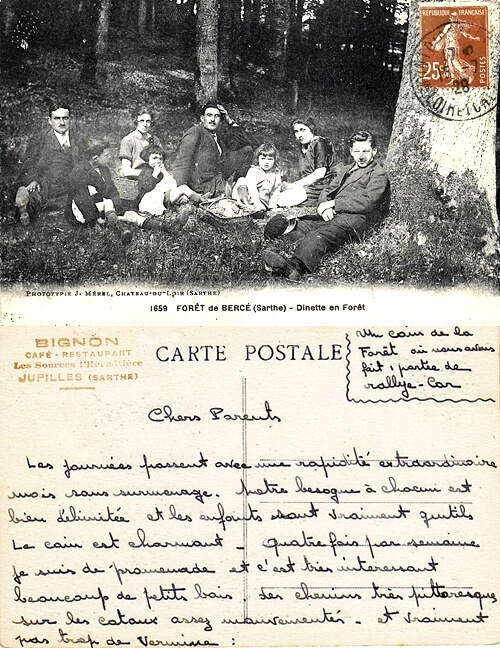 REPUBLIQUE FRANÇAISE
25c
POSTES
LOIR ET CHER
PHOTOTYPIE J. MÉREL, CHATEAU-DU-LOIR (SARTHE)
1659 FORÊT de BERCÉ (Sarthe) - Dinette en Forêt
BIGNÔN
CAFÉ - RESTAURANT
Les Sources l'Hermitière
JUPILLES (SARTHE)
CARTE POSTALE
Un coin de la
Forêt où nous avons
fait 1 partie de
rallye-Cor
Chers Parents
Les journées passent avec une rapidité extraordinaire
mais sans surmenage. Notre besogne à chacun est
bien délimitée et les enfants sont vraiment gentils
Le coin est charmant - Quatre fois par semaine
je suis de promenade et c'est très interessant
beaucoup de petits bois. Des chemins très pittoresques
sur les cotaux assez mouvementés. et vraiment
pas trop de vermine :